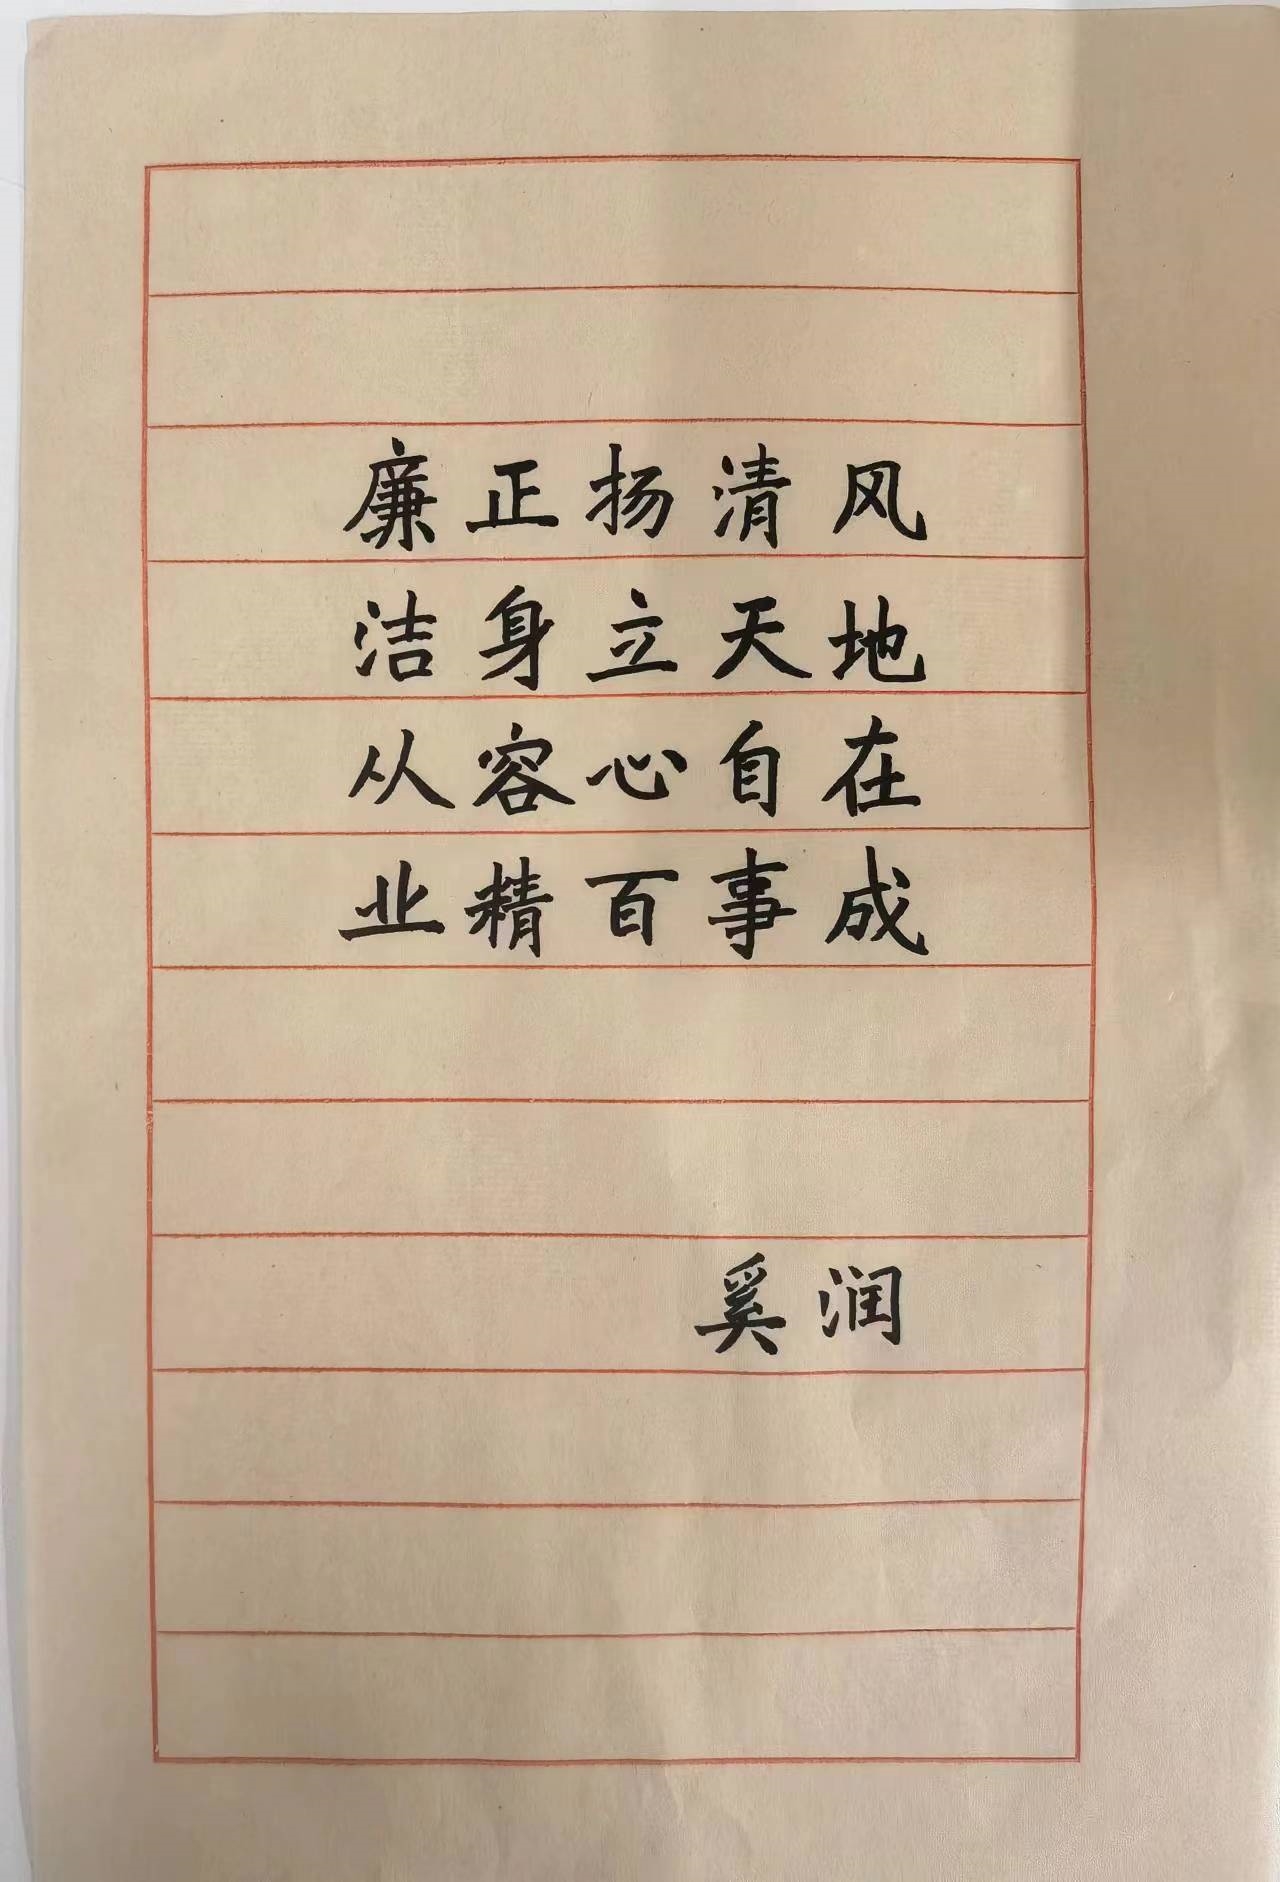 廉正扬清风
洁身立天地
从容心自在
业精百事成
奚润